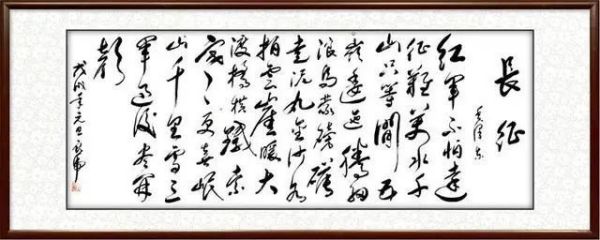 長征
毛澤東
红軍不怕遠
征難萬水千
山只等閒五
嶺逶迤騰細
浪烏蒙磅礴
走泥丸金沙水
拍雲崖暖大
渡橋横鐵索
寒更喜岷
山千里雪三
軍過後盡開
顔
年元旦